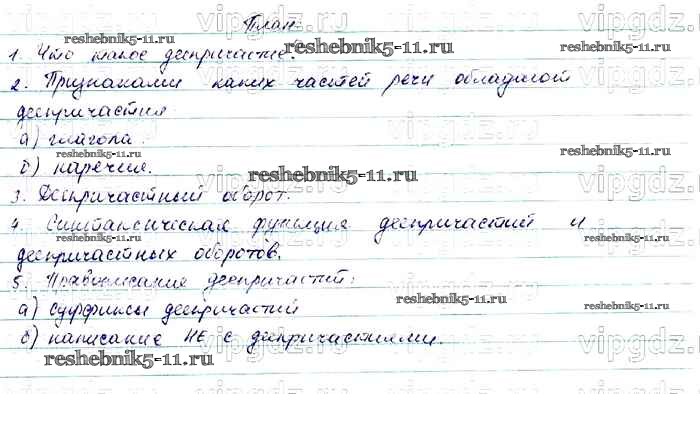 План
1. Что такое деепричастие.
2. Признаками каких частей речи обладают
деепричастия
а) глагола.
б) наречия.
3. Деепричастный оборот.
4. Синтаксическая функция деепричастий и
деепричастных оборотов.
5. Правописание деепричастий:
а) суффиксы деепричастий
б) написание НЕ с деепричастиями.
reshebnik5-11.ru
reshebnik5-11.ru
reshebnik5-11.ru
reshebnik5-11.ru
reshebnik5-11.ru
reshebnik5-11.ru
reshebnik5-11.ru
reshebnik5-11.ru
reshebnik5-11.ru
vipgdz.ru
vipgdz.ru
vipgdz.ru
vipgdz.ru
vipgdz.ru
vipgdz.ru